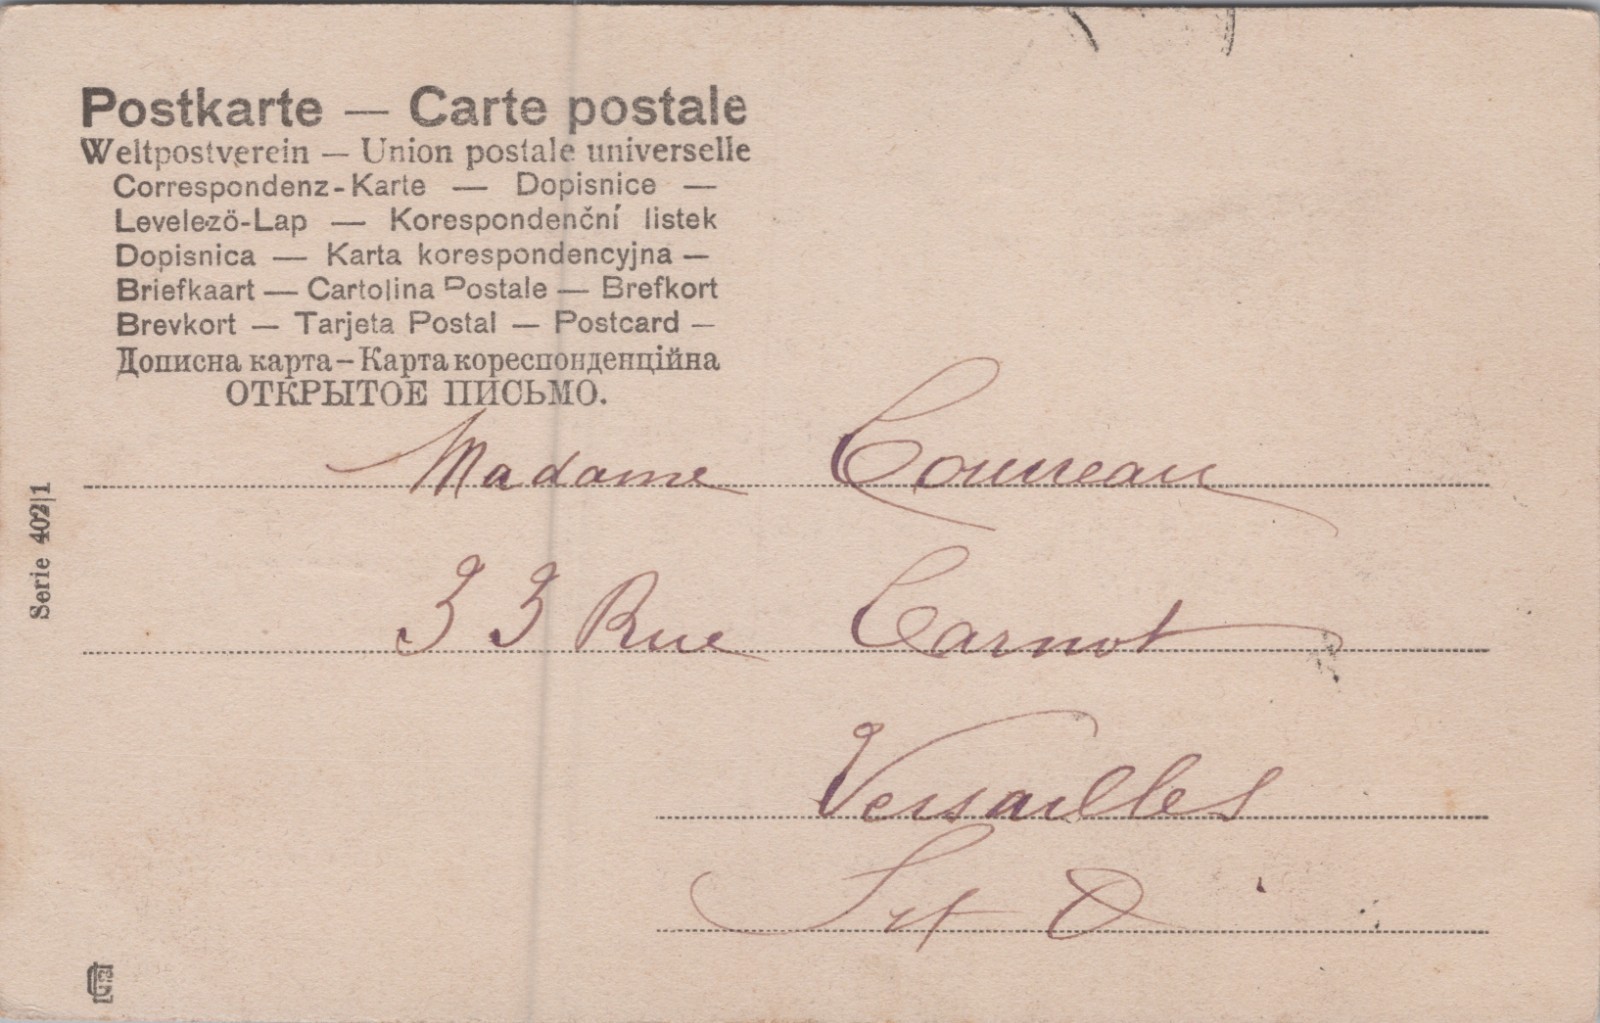 Postkarte — Carte postale
Weltpostverein — Union postale universelle
Correspondenz-Karte — Dopisnice —
Levelező-Lap — Korespondenční listek
Dopisnica — Karta korespondencyjna —
Briefkaart — Cartolina Postale — Brefkort
Brevkort — Tarjeta Postal — Postcard —
Дописна карта – Карта кореспонденційна
ОТКРЫТОЕ ПИСЬМО.
Serie 402|1
Madame
33 Rue Carnot
Versailles
S et O